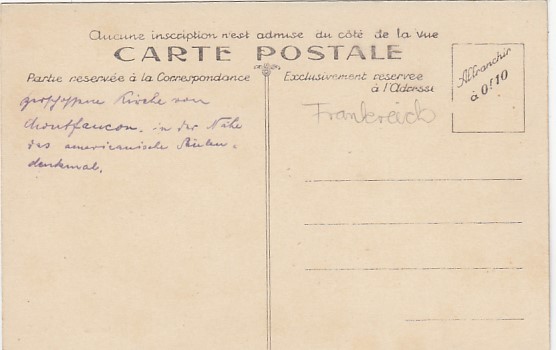 Aucune inscription n'est admise du côté de la vue
CARTE POSTALE
Partie reservée à la Correspondance
Exclusivement reservée
à l'Adersse
Affranchir
à 0f10
zerschossene Kirche von
Montfaucon. in der Nähe
das americanische Säulen-
denkmal.
Frankreich